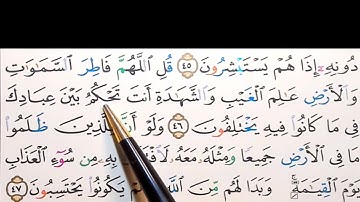 دُونِهِۦٓ إِذَا هُمْ يَسْتَبْشِرُونَ ٤٥ قُلِ ٱللَّهُمَّ فَاطِرَ ٱلسَّمَٰوَٰتِ
وَٱلْأَرْضِ عَٰلِمَ ٱلْغَيْبِ وَٱلشَّهَٰدَةِ أَنتَ تَحْكُمُ بَيْنَ عِبَادِكَ
فِى مَا كَانُوا۟ فِيهِ يَخْتَلِفُونَ ٤٦ وَلَوْ أَنَّ لِلَّذِينَ ظَلَمُوا۟
مَا فِى ٱلْأَرْضِ جَمِيعًا وَمِثْلَهُۥ مَعَهُۥ مِن سُوٓءِ ٱلْعَذَابِ
يَوْمَ ٱلْقِيَٰمَةِ ۚ وَبَدَا لَهُم مِّنَ ٱللَّهِ يَكُونُوا۟ يَحْتَسِبُونَ ٤٧